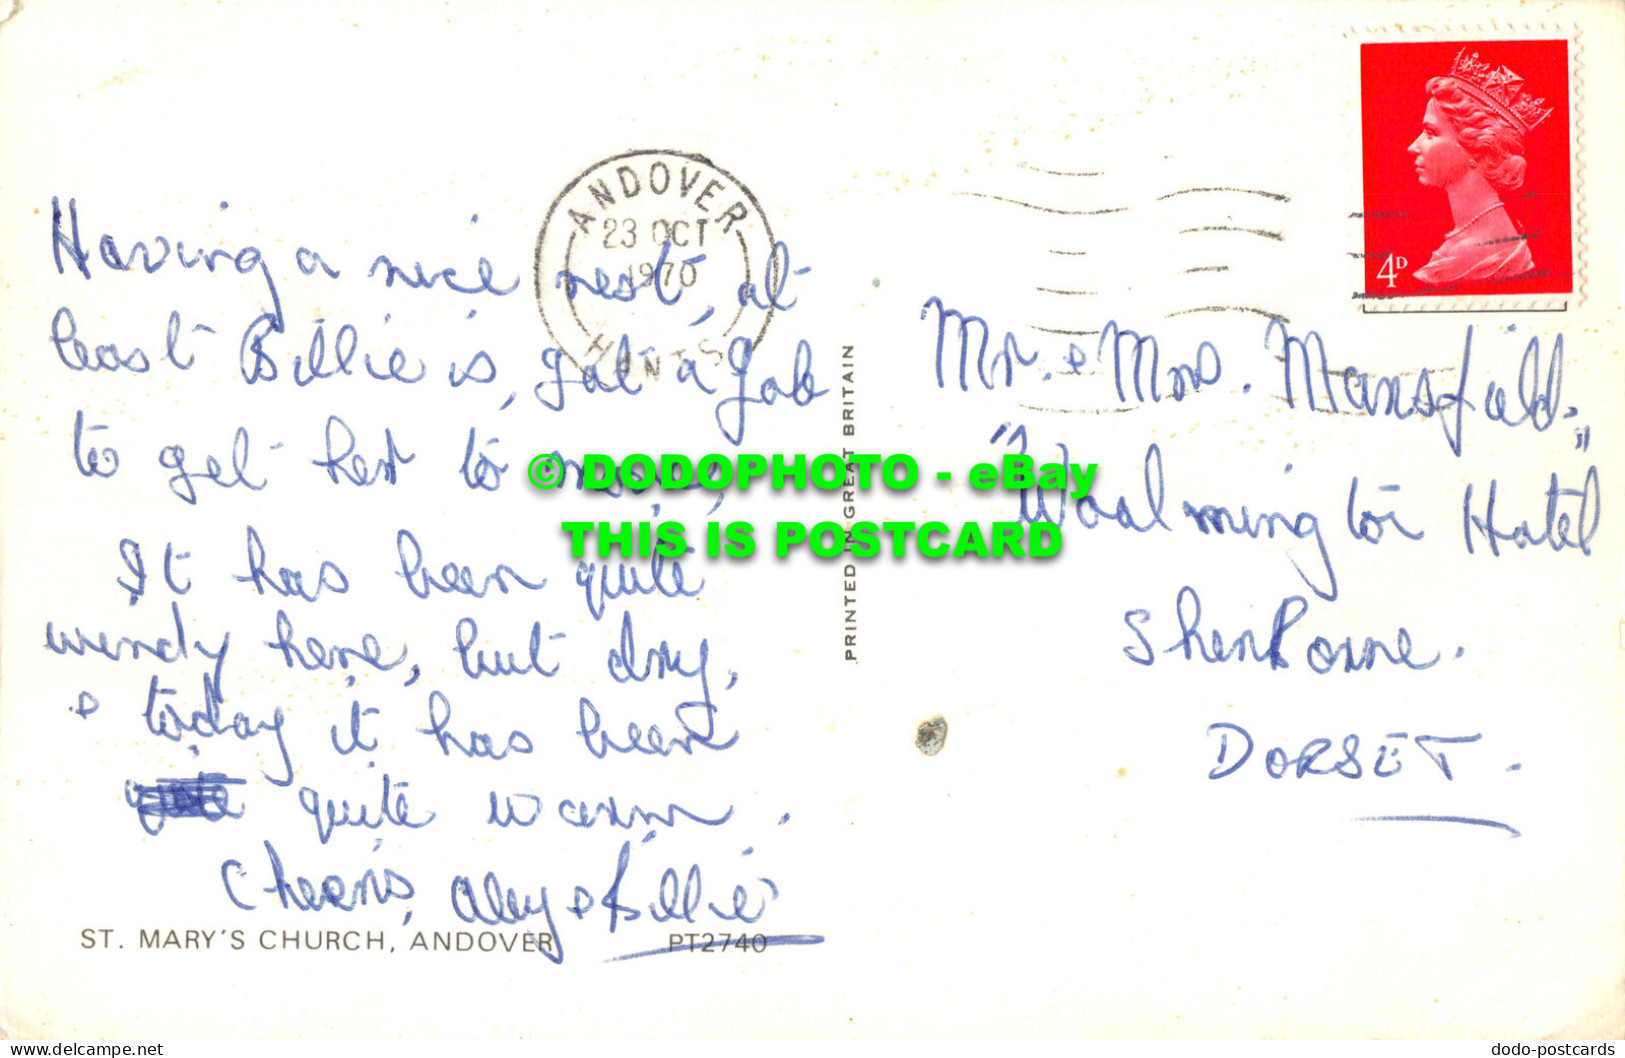 ANDOVER
23 OCT
1970
HANTS
4D
Having a nice rest, at
least Billie is, got a job
to get her to move,
It has been quite
windy here, but dry,
& today it has been
quite warm.
Cheers, & Billie
ST. MARY'S CHURCH, ANDOVER PT2740
PRINTED IN GREAT BRITAIN
Mr. & Mrs. Mansfield.
"Woolmington Hotel"
Sherborne.
DORSET.
© DODOPHOTO - eBay
THIS IS POSTCARD
delcampe.net
dodo-postcards